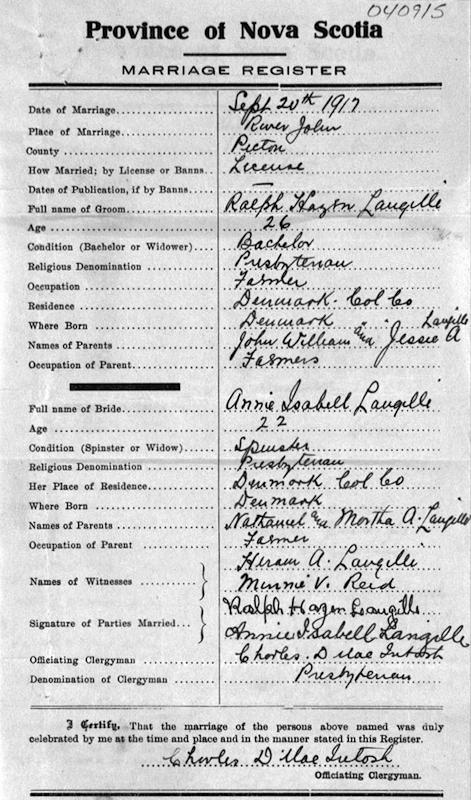 040915
Province of Nova Scotia
MARRIAGE REGISTER
Date of Marriage Sept 20th 1917
Place of Marriage River John
County Pictou
How Married; by License or Banns License
Dates of Publication, if by Banns —
Full name of Groom Ralph Hazen Langille
Age 26
Condition (Bachelor or Widower) Bachelor
Religious Denomination Presbyterian
Occupation Farmer
Residence Denmark Col Co
Where Born Denmark " "
Names of Parents John William and Jessie A Langille
Occupation of Parent Farmers
Full name of Bride Annie Isabell Langille
Age 22
Condition (Spinster or Widow) Spinster
Religious Denomination Presbyterian
Her Place of Residence Denmark Col Co
Where Born Denmark
Names of Parents Nathaniel and Martha A. Langille
Occupation of Parent Farmer
Names of Witnesses } Hiram A. Langille
Minnie V. Reid
Signature of Parties Married } Ralph Hazen Langille
Annie Isabell Langille
Officiating Clergyman Charles D MacIntosh
Denomination of Clergyman Presbyterian
I Certify, That the marriage of the persons above named was duly
celebrated by me at the time and place and in the manner stated in this Register.
Charles D MacIntosh
Officiating Clergyman.